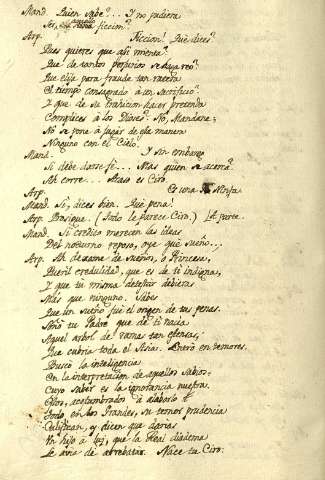 Mand. Quien sabe?... Y no pudiera
Ser aquello ficcion?
Arp. Ficcion! Què dices?
Pues quieres que asi mienta?
Que de tantos perjurios se haga reo?
Que elija para fraude tan rastera
El tiempo consagrado à un sacrificio?
Y que de su trahicion hacer pretenda
Complices à los Dioses? No, Mandane;
No se pone à jugar de esa manera
Ninguno con el Cielo.
Mand. Y sin embargo
Si debe darse fè... Mas quien se acerca?
Ah corre... Acaso es Ciro.
Arp. Es una Ninfa.
Mand. Si, dices bien. Què pena!
Arp. Prosigue. (Todo le parece Ciro.) Aparte.
Mand. Si credito merecen las ideas
Del nocturno reposo, oye què sueño...
Arp. Ah dexame de sueños, o Princesa,
Pueril credulidad, que es de ti indigna,
Y que tu misma detestar debieras
Mas que ninguno. Sabes
Que un sueño fuè el origen de tus penas.
Soñò tu Padre que de ti nacia
Aquel arbol de ramas tan estensas,
Que cubria toda el Asia. Entrò en temores.
Buscò la inteligencia
En la interpretacion de aquellos Sabios,
Cuyo saber es la ignorancia nuestra.
Ellos, acostumbrados à alabarlo
Todo en los Grandes, su temor prudencia
Califican, y dicen que darias
Un hijo à luz, que la Real diadema
Le avia de arrebatar. Nace tu Ciro.